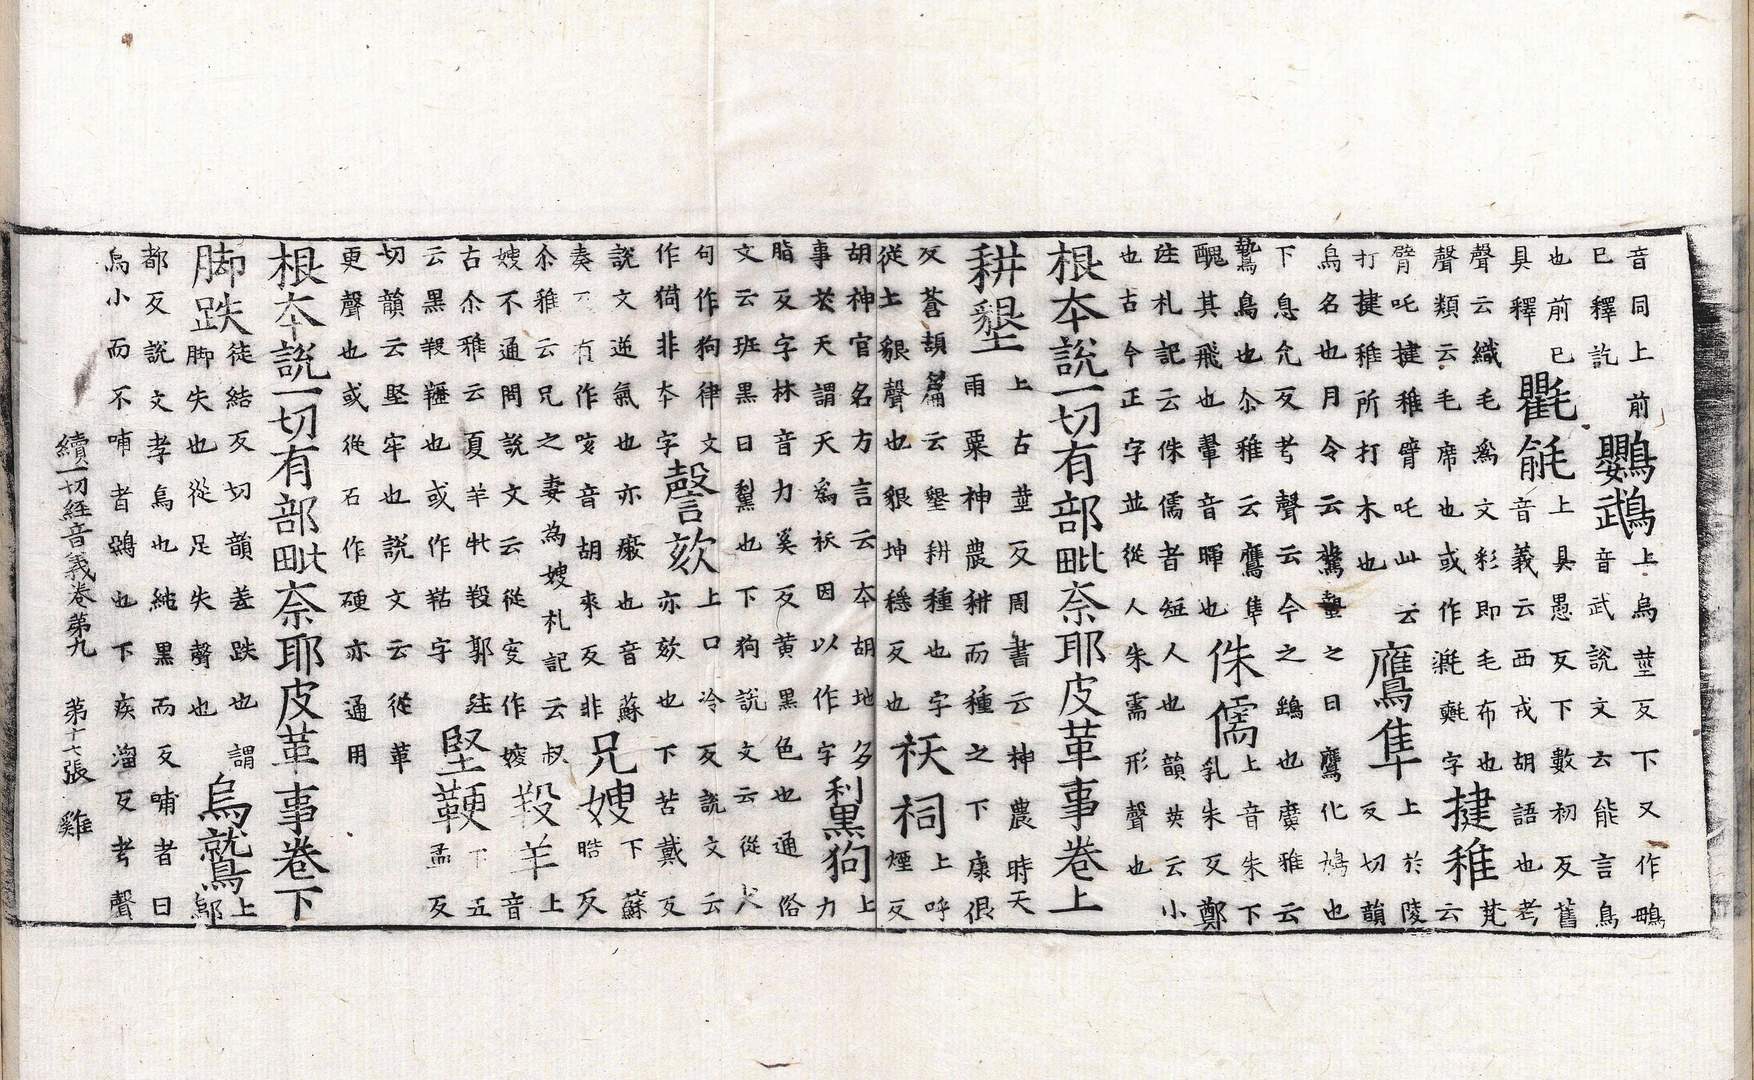 音同上前
巳釋訖
鸚䳇
上烏莖反下又作鴨
音武說文云能言鳥
也前巳
具釋
氍毹
上具愚反下數初反舊
音義云西戎胡語也考
聲云織毛為文彩即毛布也
聲類云毛席也或作字
揵稚
梵
云
臂吒揵稚臂吒此云
打揵稚所打木也
鷹隼
上於陵
反切韻
鳥名也月令云驚蟄之日鷹化鳩也
下息允反考聲云今之鷂也廣雅云
鷙鳥也尒雅云鷹隼
醜其飛也翬音暉也
侏儒
上音朱下
乳朱反鄭
注札記云侏儒者短人也韻英云小
也古今正字並從人朱需形聲也
根夲說一切有部毗奈耶皮革事卷上
耕墾
上古莖反周書云神農時天
雨粟神農耕而種之下康佷
反蒼頡篇云墾耕種也字
從土貇聲也貇坤穩反也
祆祠
上呼
煙反
胡神官名方言云夲胡地多
事於天謂天為祆因以作字
利黑狗
上
力
脂反字林音力奚反黃黑色也通俗
文云班黑曰黧也下狗說文云從犬
句作狗律文
作㺃非夲字
謦欬
上口冷反說文云
亦欬也下苦戴反
說文逆氣也亦瘷也音蘇
奏反有作咳音胡來反非
兄嫂
下蘇
晧反
尒雅云兄之妻為嫂札記云叔
嫂不通問說文云從叜作㛐
羖羊
上
音
古尒雅云夏羊牝羖郭注
云黑羖䍽也或作䍩字
堅鞕
下五
孟反
切韻云堅牢也說文云從革
更聲也或從石作硬亦通用
根夲說一切有部毗奈耶皮革事卷下
脚跌
徒結反切韻差跌也謂
脚失也從足失聲也
烏鷲
上
鄔
都反說文孝烏也純黑而反哺者曰
烏小而不哺者鵶也下疾溜反考聲
續一切経音義卷第九 第十七張 雞